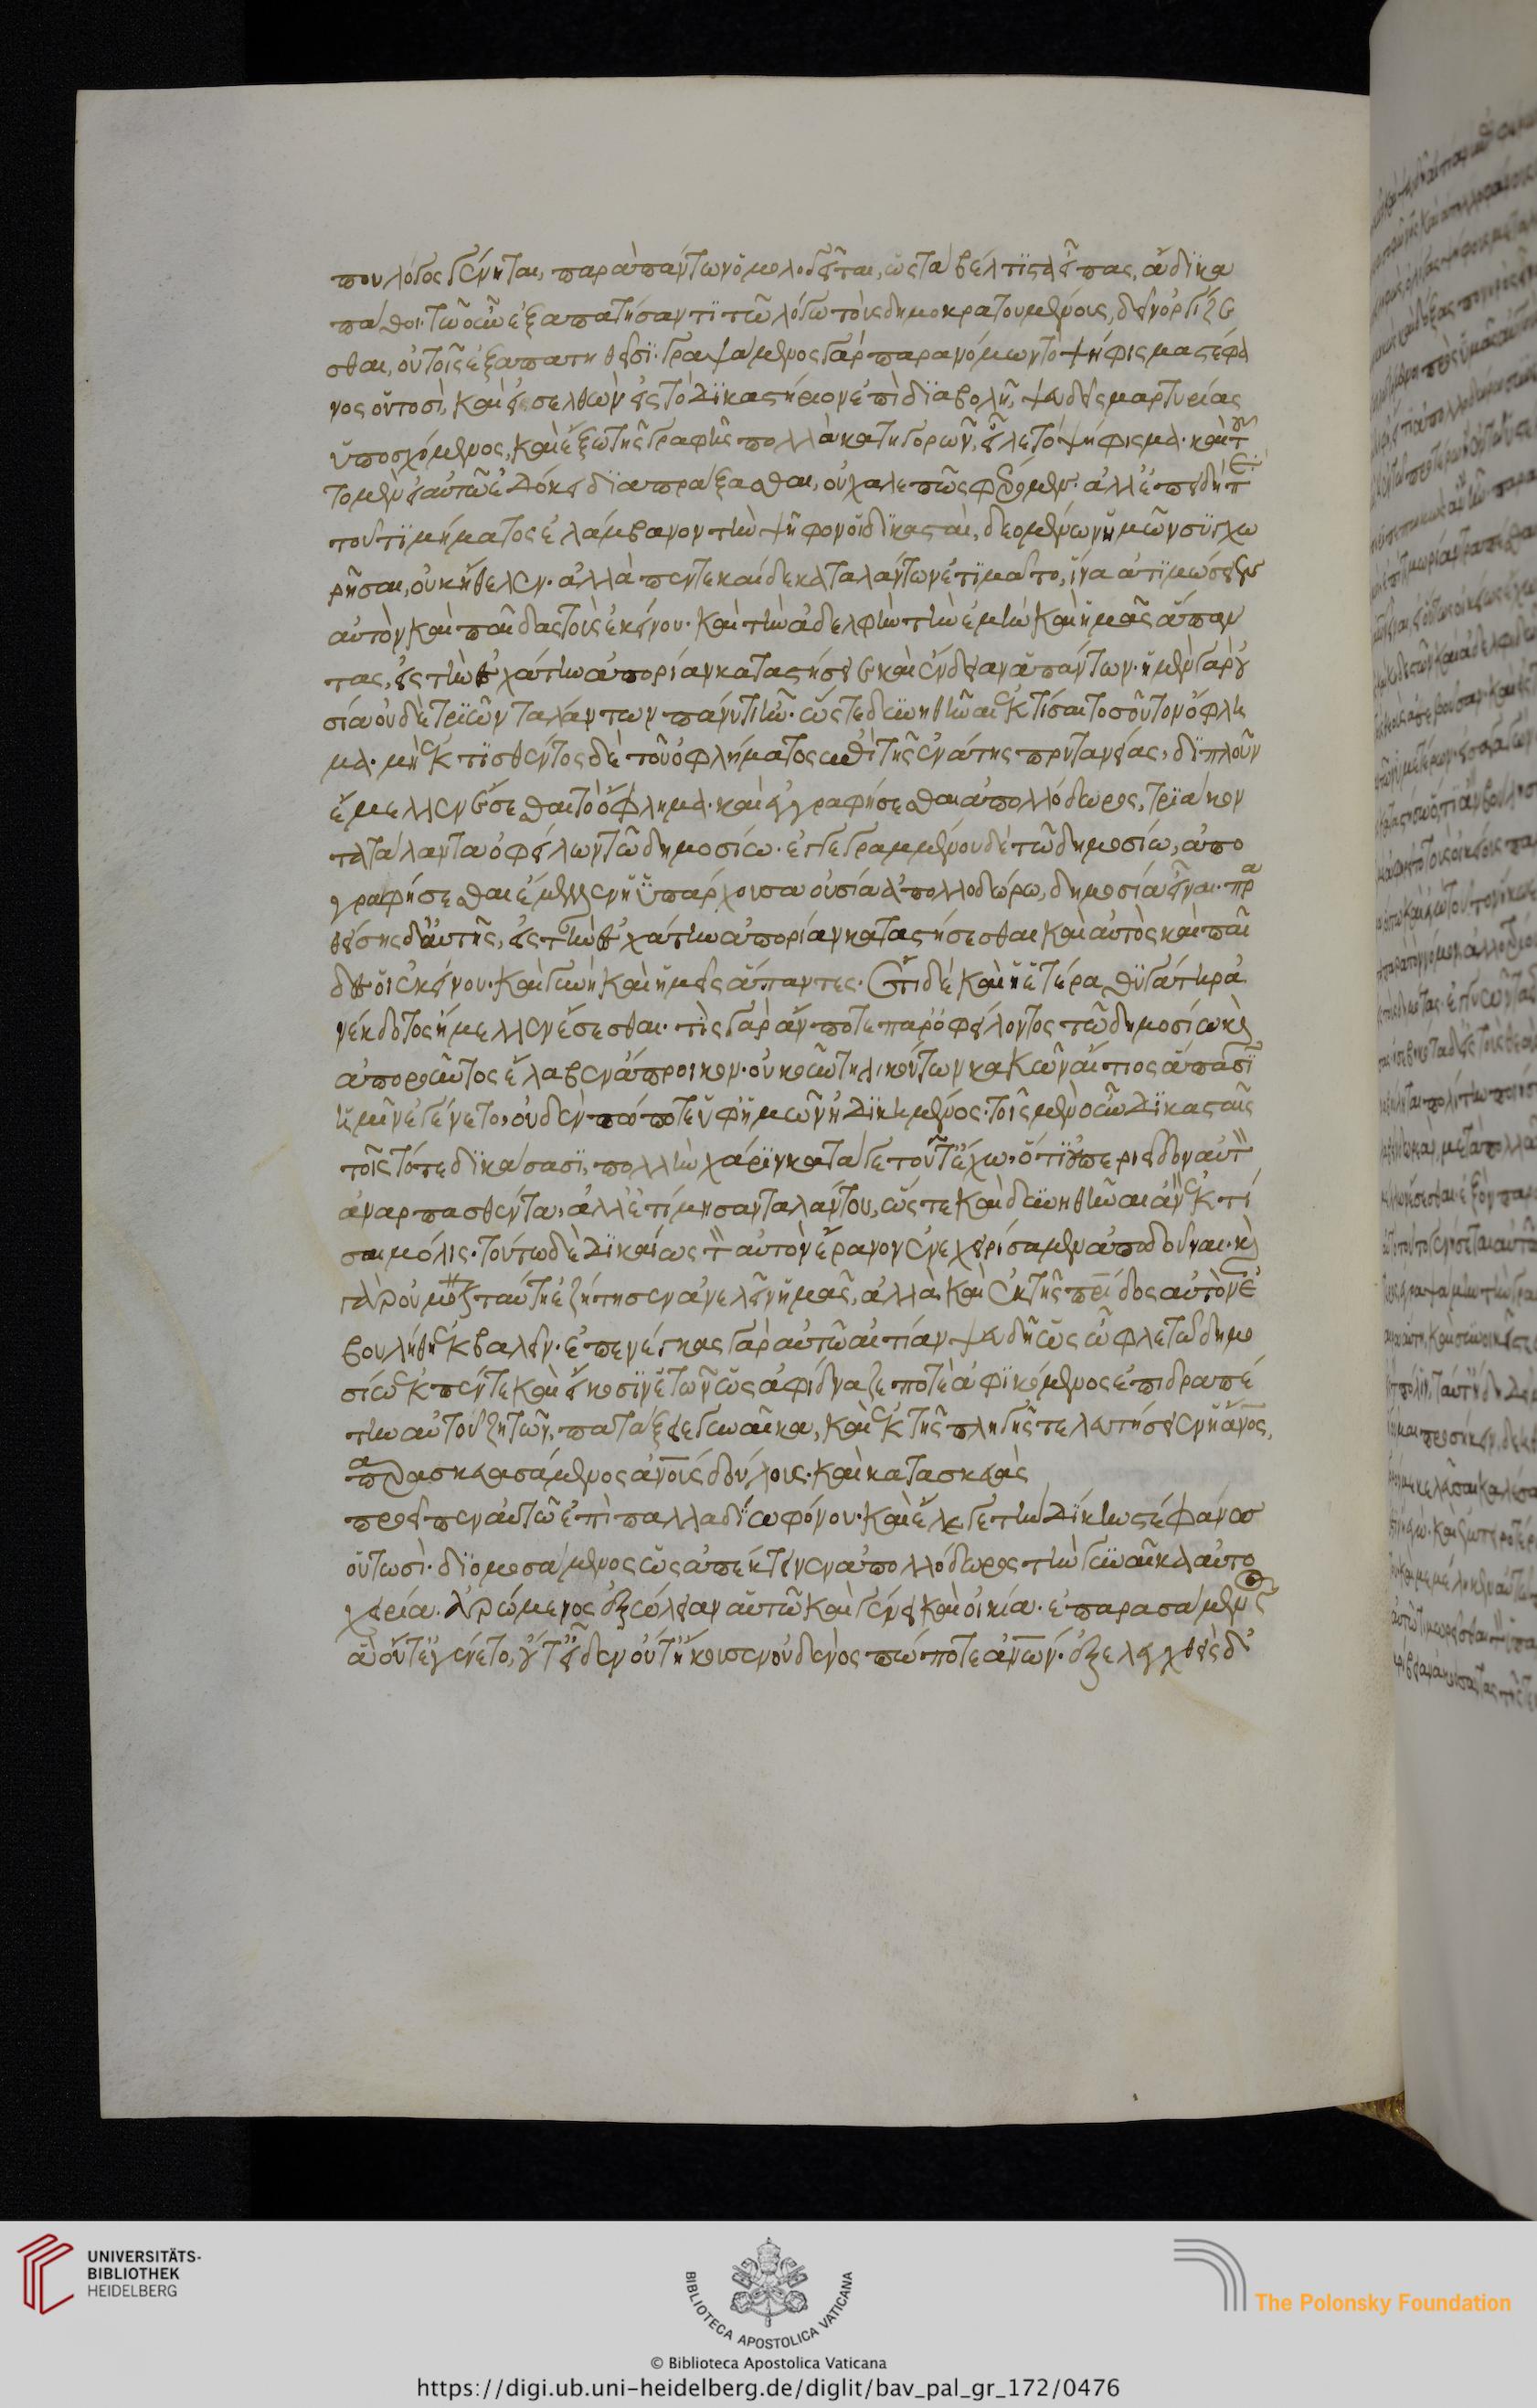 που λόγος γένηται, παρὰ πάντων ὁμολογεῖται, ὡς τὰ βέλτιστα εἴπας, ἄδικα
πάθοι· τῷ οὖν ἐξαπατήσαντι τῷ λόγῳ τοὺς δημοκρατουμένους, δεῖν ὀργίζε
σθαι, οὐ τοῖς ἐξαπατηθεῖσι· γραψάμενος γὰρ παρανόμων τὸ ψήφισμα στέφα
νος οὑτοσὶ, καὶ εἰσελθὼν εἰς τὸ δικαστήριον ἐπὶ διαβολῇ, ψευδεῖς μαρτυρίας
ὑποσχόμενος, καὶ ἔξω τῆς γραφῆς πολλὰ κατηγορῶν, εἷλε τὸ ψήφισμα· καὶ τοῦ
το μὲν εἰ αὐτῷ ἐδόκει διαπράξασθαι, οὐ χαλεπῶς φέρομεν· ἀλλ' ἐπειδὴ περὶ
τοῦ τιμήματος ἐλάμβανον τὴν ψῆφον οἱ δικασταὶ, δεομένων ἡμῶν συγχω
ρῆσαι, οὐκ ἤθελεν· ἀλλὰ πεντεκαίδεκα ταλάντων ἐτιμᾶτο, ἵνα ἀτιμώσειεν
αὐτὸν καὶ παῖδας τοὺς ἐκείνου· καὶ τὴν ἀδελφὴν τὴν ἐμὴν καὶ ἡμᾶς ἅπαν
τας, εἰς τὴν ἐσχάτην ἀπορίαν καταστήσειε καὶ ἔνδειαν ἁπάντων· ἡ μὲν γὰρ οὐ
σία οὐδὲ τριῶν ταλάντων πάνυ τι ἦν· ὥστε δυνηθῆναι ἐκτίσαι τοσοῦτον ὄφλη
μα· μὴ ἐκτισθέντος δὲ τοῦ ὀφλήματος ἐπὶ τῆς ἐνάτης πρυτανείας, διπλοῦν
ἔμελλεν ἔσεσθαι τὸ ὄφλημα· καὶ ἐγγραφήσεσθαι ἀπολλόδωρος, τριάκον
τα τάλαντα ὀφείλων τῷ δημοσίῳ· ἐγγεγραμμένου δὲ τῷ δημοσίῳ, ἀπο
γραφήσεσθαι ἔμελλεν ἡ ὑπάρχουσα οὐσία ἀπολλοδώρῳ, δημοσία εἶναι· πρα
θείσης δ' αὐτῆς, εἰς τὴν ἐσχάτην ἀπορίαν καταστήσεσθαι καὶ αὐτὸς καὶ παῖ
δες οἱ ἐκείνου· καὶ γυνὴ καὶ ἡμεῖς ἅπαντες· ἔτι δὲ καὶ ἡ ἑτέρα θυγάτηρ ἀ
νέκδοτος ἤμελλεν ἔσεσθαι· τίς γὰρ ἄν ποτε παρ' ὀφείλοντος τῷ δημοσίῳ καὶ
ἀποροῦντος ἔλαβεν ἄπροικον· οὐκοῦν τηλικούτων κακῶν αἴτιος ἅπασιν
ἡμῖν ἐγένετο, οὐδὲν πώποτε ὑφ' ἡμῶν ἠδικημένος· τοῖς μὲν οὖν δικασταῖς
τοῖς τότε δικάσασι, πολλὴν χάριν κατά γε τοῦτ' ἔχω, ὅτι οὐ περιεῖδον αὐτὸν
ἀναρπασθέντα, ἀλλ' ἐτίμησαν ταλάντου, ὥστε καὶ δυνηθῆναι ἂν ἐκτί
σαι μόλις· τούτῳ δὲ δικαίως τὸν αὐτὸν ἔρανον ἐνεχειρίσαμεν ἀποδοῦναι· καὶ
γὰρ οὐ μόνον ταύτῃ ἐζήτησεν ἀνελεῖν ἡμᾶς, ἀλλὰ καὶ ἐκ τῆς πατρίδος αὐτὸν ἐ
βουλήθη ἐκβαλεῖν· ἐπενέγκας γὰρ αὐτῷ αἰτίαν ψευδῆ ὡς ὦφλε τῷ δημο
σίῳ ἐκ πέντε καὶ εἴκοσιν ἐτῶν ὡς ἀφίδναζέ ποτε ἀφικόμενος ἐπὶ δραπέ
την αὑτοῦ ζητῶν, πατάξειε γυναῖκα, καὶ ἐκ τῆς πληγῆς τελευτήσειεν ἡ ἄνθρωπος,
παρασκευασάμενος ἀνθρώπους δούλους· καὶ κατασκευὰς
προεῖπεν αὐτῷ ἐπὶ παλλαδίῳ φόνου· καὶ ἔλεγε τὴν δίκην στέφανος
οὑτοσὶ· διομοσάμενος ὡς ἀπέκτεινεν ἀπολλόδωρος τὴν γυναῖκα αὐτο
χειρία· ἀρώμενος ἐξώλειαν αὑτῷ καὶ γένει καὶ οἰκία· ἐπαρασάμενος
ἃ οὔτ' ἐγένετο, οὔτ' εἶδεν οὔτ' ἤκουσεν οὐδενὸς πώποτε ἀνθρώπων· ἐξελεγχθεὶς δ'
UNIVERSITÄTS-
BIBLIOTHEK
HEIDELBERG
BIBLIOTECA APOSTOLICA VATICANA
© Biblioteca Apostolica Vaticana
The Polonsky Foundation
https://digi.ub.uni-heidelberg.de/diglit/bav_pal_gr_172/0476